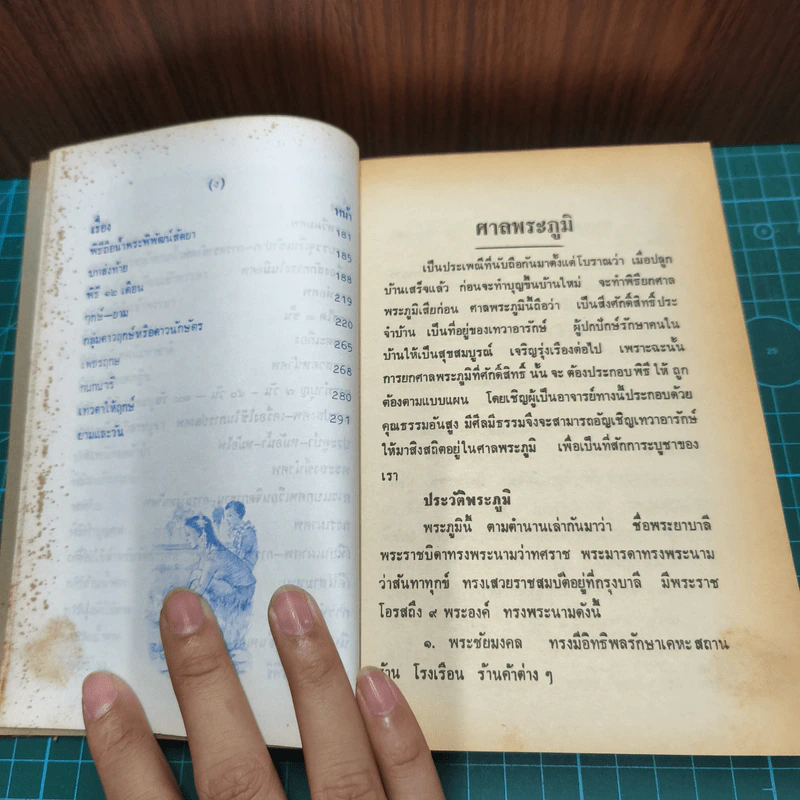 (๔)
เรื่อง
หน้า
พิธีถือน้ำพระพิพัฒน์สัตยา
181
บทส่งท้าย
185
พิธี ๑๒ เดือน
188
ฤกษ์-ยาม
219
กลุ่มดาวฤกษ์หรือดาวนักษัตร
220
เพชรฤกษ์
265
กบกบารี
268
เทวดาให้ฤกษ์
280
ยามและวัน
291
ศาลพระภูมิ
เป็นประเพณีที่นับถือกันมาตั้งแต่โบราณว่า เมื่อปลูก
บ้านเสร็จแล้ว ก่อนจะทำบุญขึ้นบ้านใหม่ จะทำพิธียกศาล
พระภูมิเสียก่อน ศาลพระภูมินี้ถือว่า เป็นสิ่งศักดิ์สิทธิ์ประ
จำบ้าน เป็นที่อยู่ของเทวาอารักษ์ ผู้ปกปักษ์รักษาคนใน
บ้านให้เป็นสุขสมบูรณ์ เจริญรุ่งเรืองต่อไป เพราะฉะนั้น
การยกศาลพระภูมิที่ศักดิ์สิทธิ์ นั้น จะ ต้องประกอบ พิธี ให้ ถูก
ต้องตามแบบแผน โดยเชิญผู้เป็นอาจารย์ทางนี้ประกอบด้วย
คุณธรรมอันสูง มีศีลมีธรรมจึงจะสามารถอัญเชิญเทวาอารักษ์
ให้มาสิงสถิตอยู่ในศาลพระภูมิ เพื่อเป็นที่สักการะบูชาของ
เรา
ประวัติพระภูมิ
พระภูมินี้ ตามตำนานเล่ากันมาว่า ชื่อพระยาบาลี
พระราชบิดาทรงพระนามว่าทศราช พระมารดาทรงพระนาม
ว่าสันทาทุกข์ ทรงเสวยราชสมบัติอยู่ที่กรุงบาลี มีพระราช
โอรสถึง ๙ พระองค์ ทรงพระนามดังนี้
๑. พระชัยมงคล ทรงมีอิทธิพลรักษาเคหะสถาน
ร้าน โรงเรือน ร้านค้าต่าง ๆ